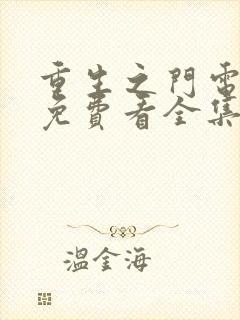 重生之門電
免費看全集
溫金海